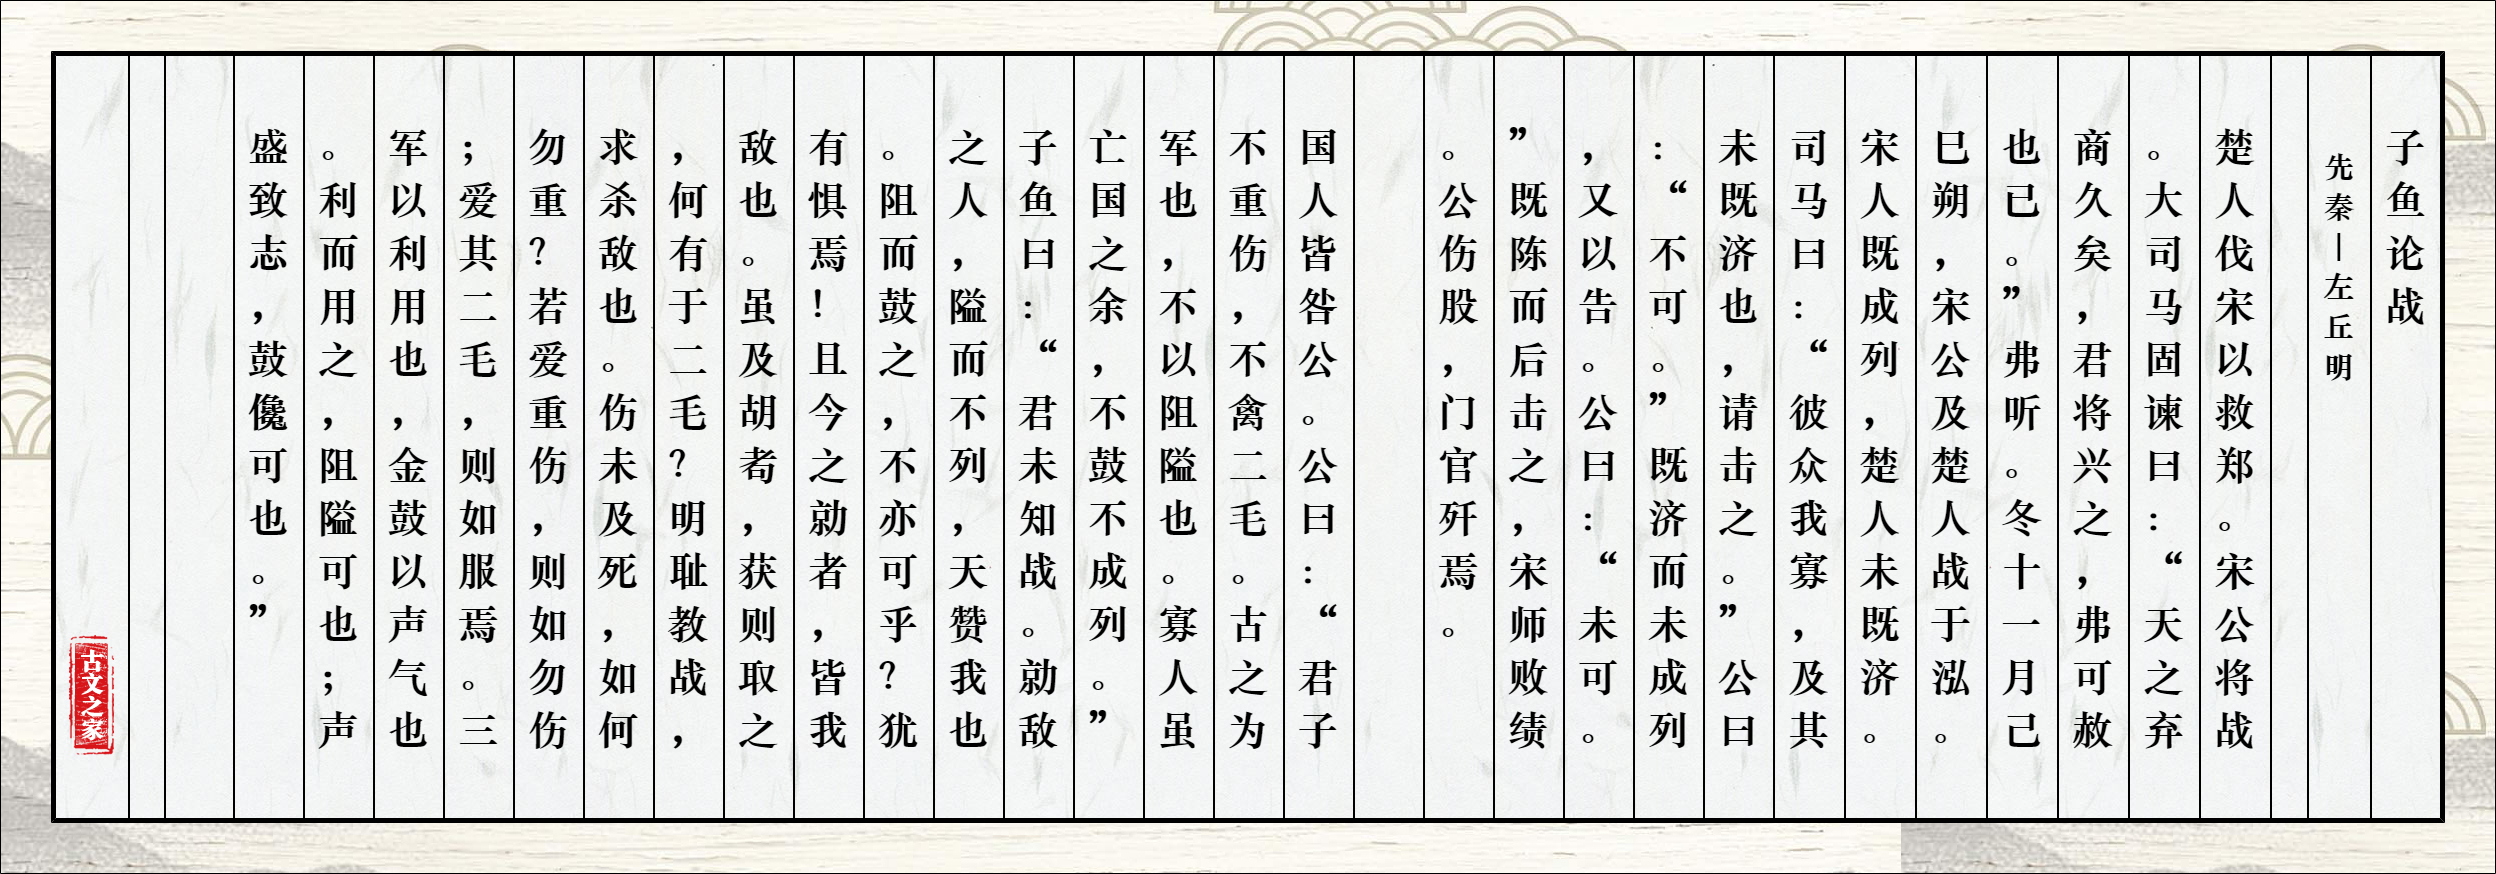 子鱼论战
先秦－左丘明
楚人伐宋以救郑。宋公将战
。大司马固谏曰：“天之弃
商久矣，君将兴之，弗可赦
也已。”弗听。冬十一月己
巳朔，宋公及楚人战于泓。
宋人既成列，楚人未既济。
司马曰：“彼众我寡，及其
未既济也，请击之。”公曰
：“不可。”既济而未成列
，又以告。公曰：“未可。
”既陈而后击之，宋师败绩
。公伤股，门官歼焉。
国人皆咎公。公曰：“君子
不重伤，不禽二毛。古之为
军也，不以阻隘也。寡人虽
亡国之余，不鼓不成列。”
子鱼曰：“君未知战。勍敌
之人，隘而不列，天赞我也
。阻而鼓之，不亦可乎？犹
有惧焉！且今之勍者，皆我
敌也。虽及胡耇，获则取之
，何有于二毛？明耻教战，
求杀敌也。伤未及死，如何
勿重？若爱重伤，则如勿伤
；爱其二毛，则如服焉。三
军以利用也，金鼓以声气也
。利而用之，阻隘可也；声
盛致志，鼓儳可也。”
古文之家